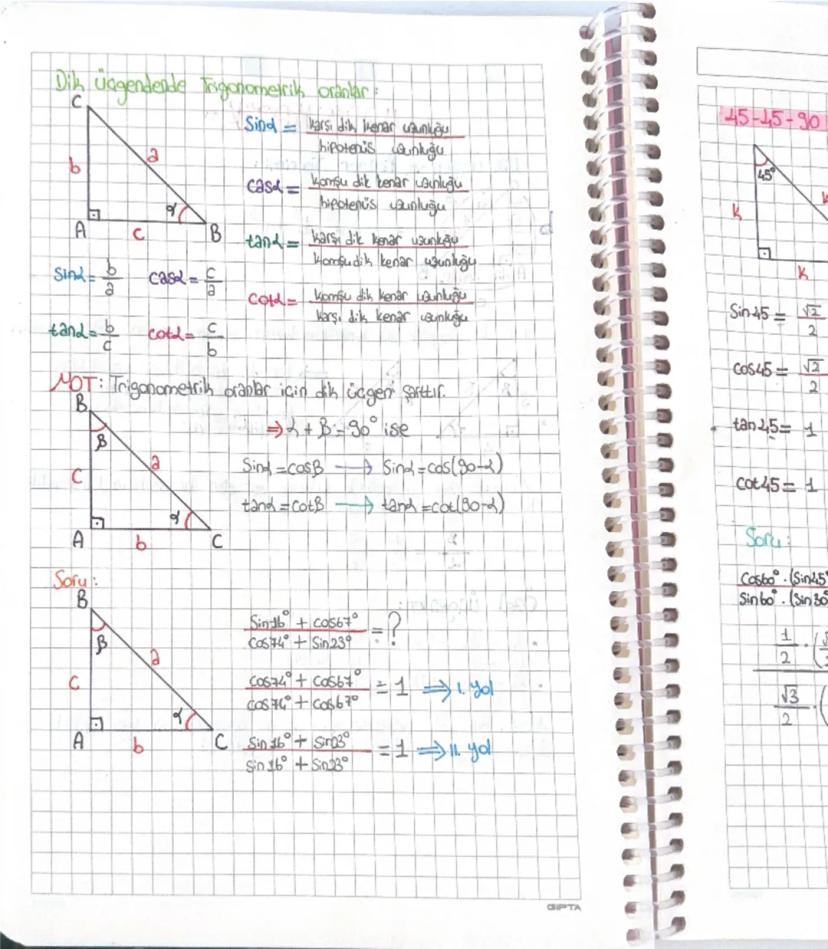 Dik üçgendende Trigonometrik oranlar:
C
b
a
A
c
α
B
Sinα = karşı dik kenar uzunluğu / hipotenüs uzunluğu
cosα = komşu dik kenar uzunluğu / hipotenüs uzunluğu
tanα = karşı dik kenar uzunluğu / komşu dik kenar uzunluğu
cotα = komşu dik kenar uzunluğu / karşı dik kenar uzunluğu
sinα = b/a cosα = c/a
tanα = b/c cotα = c/b
NOT: Trigonometrik oranlar için dik üçgen şarttır.
B
β
c
a
A
b
α
C
⇒ α + β = 90° ise
Sinα = cosβ → Sinα = cos(90-α)
tanα = cotβ → tanα = cot(90-α)
Soru:
B
β
c
a
A
b
α
C
Sin16° + cos67° / cos74° + Sin23° = ?
cos74° + cos67° / cos74° + cos67° = 1 ⇒ I. yol
sin16° + sin23° / sin16° + sin23° = 1 ⇒ II. yol
GIPTA
45-45-90
45°
k
k
Sin45 = √2/2
cos45 = √2/2
tan45 = 1
cot45 = 1
Soru:
Cos60° . (Sin45°
Sin60° . (Sin30°
1/2 . (
√3/2 . (